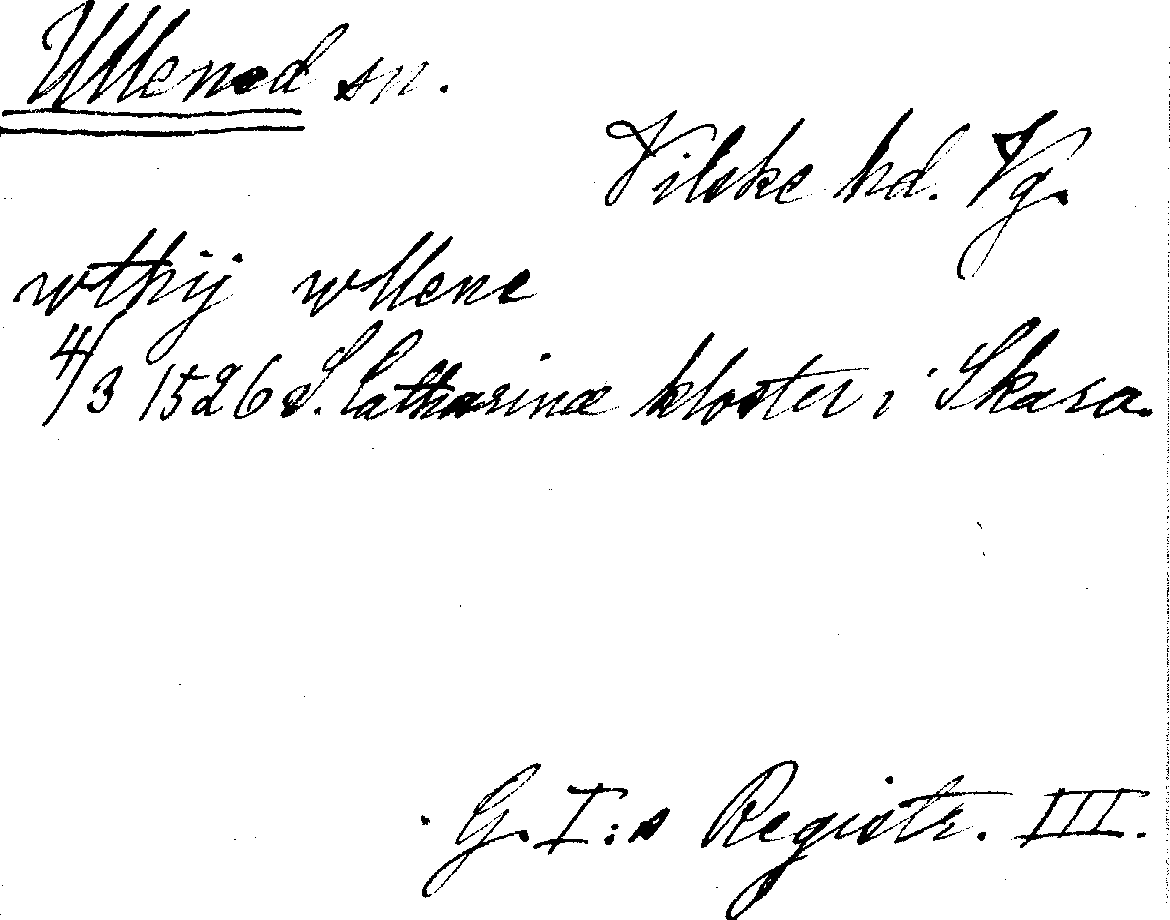 Ullened sn.
Vilske hd. Vg.
wthij wllene
4/3 1526 S. Catharinæ kloster i Skara.
G. I:s Registr. III.